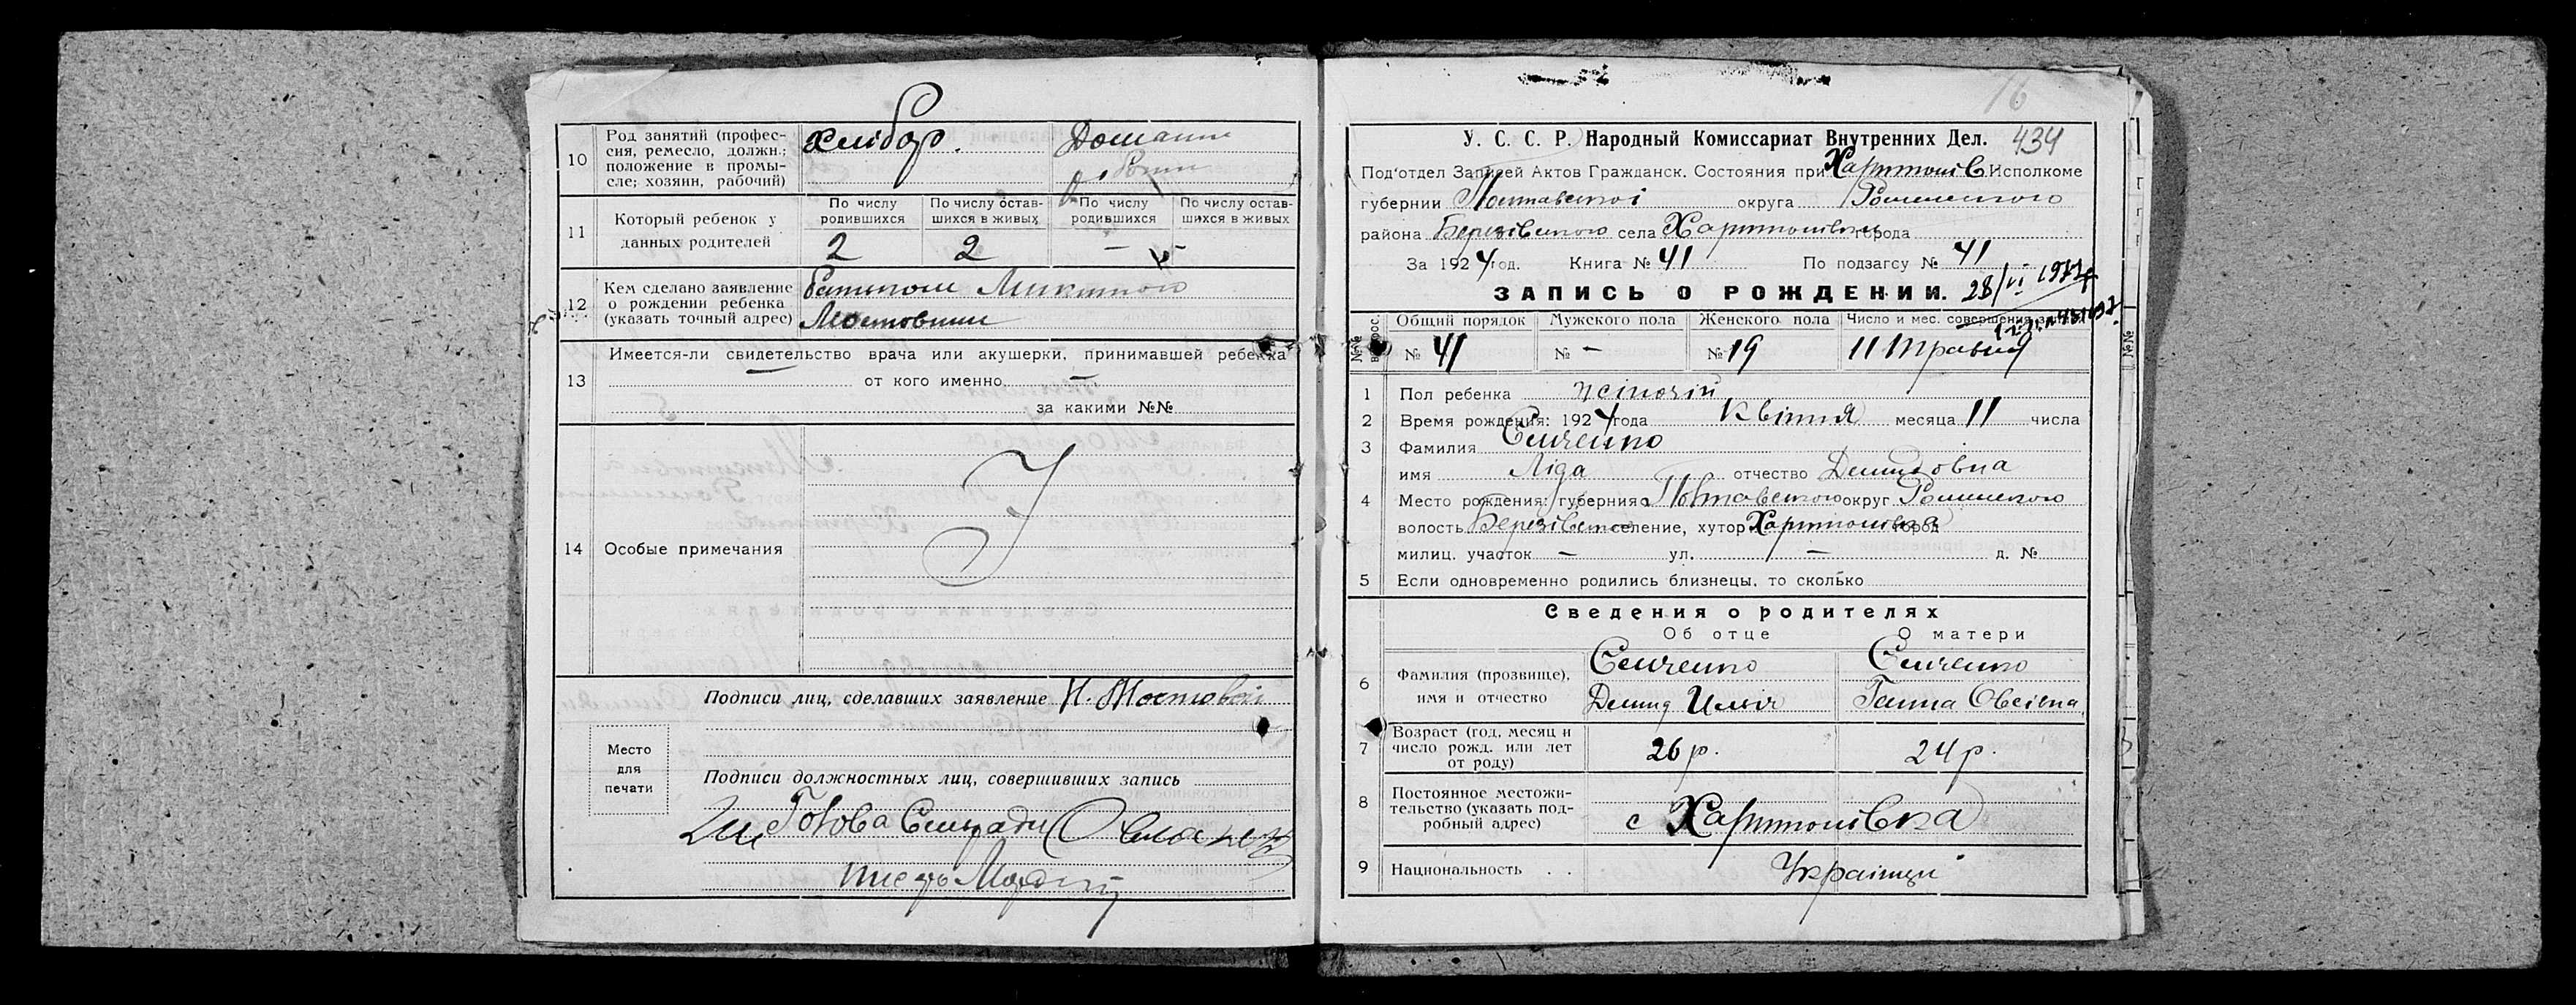 10 Род занятий (профес-
сия, ремесло, должн.;
положение в промы-
сле; хозяин, рабочий)
Хлібор.
Домашн
11 Который ребенок у
данных родителей
По числу
родившихся
По числу остав-
шихся в живых
По числу
родившихся
По числу остав-
шихся в живых
2 2 — —
12 Кем сделано заявление
о рождении ребенка
(указать точный адрес)
Батьком Микитою
Мостовим
13 Имеется-ли свидетельство врача или акушерки, принимавшей ребенка
— от кого именно —
за какими №№
14 Особые примечания
Подписи лиц, сделавших заявление Н. Мостовой
Место
для
печати
Подписи должностных лиц, совершивших запись
Голова Сельради
16
У. С. С. Р. Народный Комиссариат Внутренних Дел. 434
Под'отдел Записей Актов Гражданск. Состояния при Харитонів. Исполкоме
губернии Полтавської округа Роменського
района Березівського села Харитонівки города
За 1924 год. Книга № 41 По подзагсу № 41
ЗАПИСЬ О РОЖДЕНИИ. 28/VI 1977г
№№ вопрос.
Общий порядок Мужского пола Женского пола Число и мес. совершения записи
№ 41 № — № 19 11 Травня
1 Пол ребенка жіночій
2 Время рождения: 1924 года Квітня месяца 11 числа
3 Фамилия Семченко
имя Ліда отчество Демидовна
4 Место рождения: губерния Полтавського округ Роменського
волость Березівської селение, хутор Харитонівка город
милиц. участок — ул. — д. №
5 Если одновременно родились близнецы, то сколько
Сведения о родителях
Об отце О матери
6 Фамилия (прозвище),
имя и отчество
Семченко
Демид Ильіч
Семченко
Ганна Овсіівна
7 Возраст (год, месяц и
число рожд. или лет
от роду)
26 р. 24 р.
8 Постоянное местожи-
тельство (указать под-
робный адрес)
с Харитонівка
9 Национальность . . Українці
№№